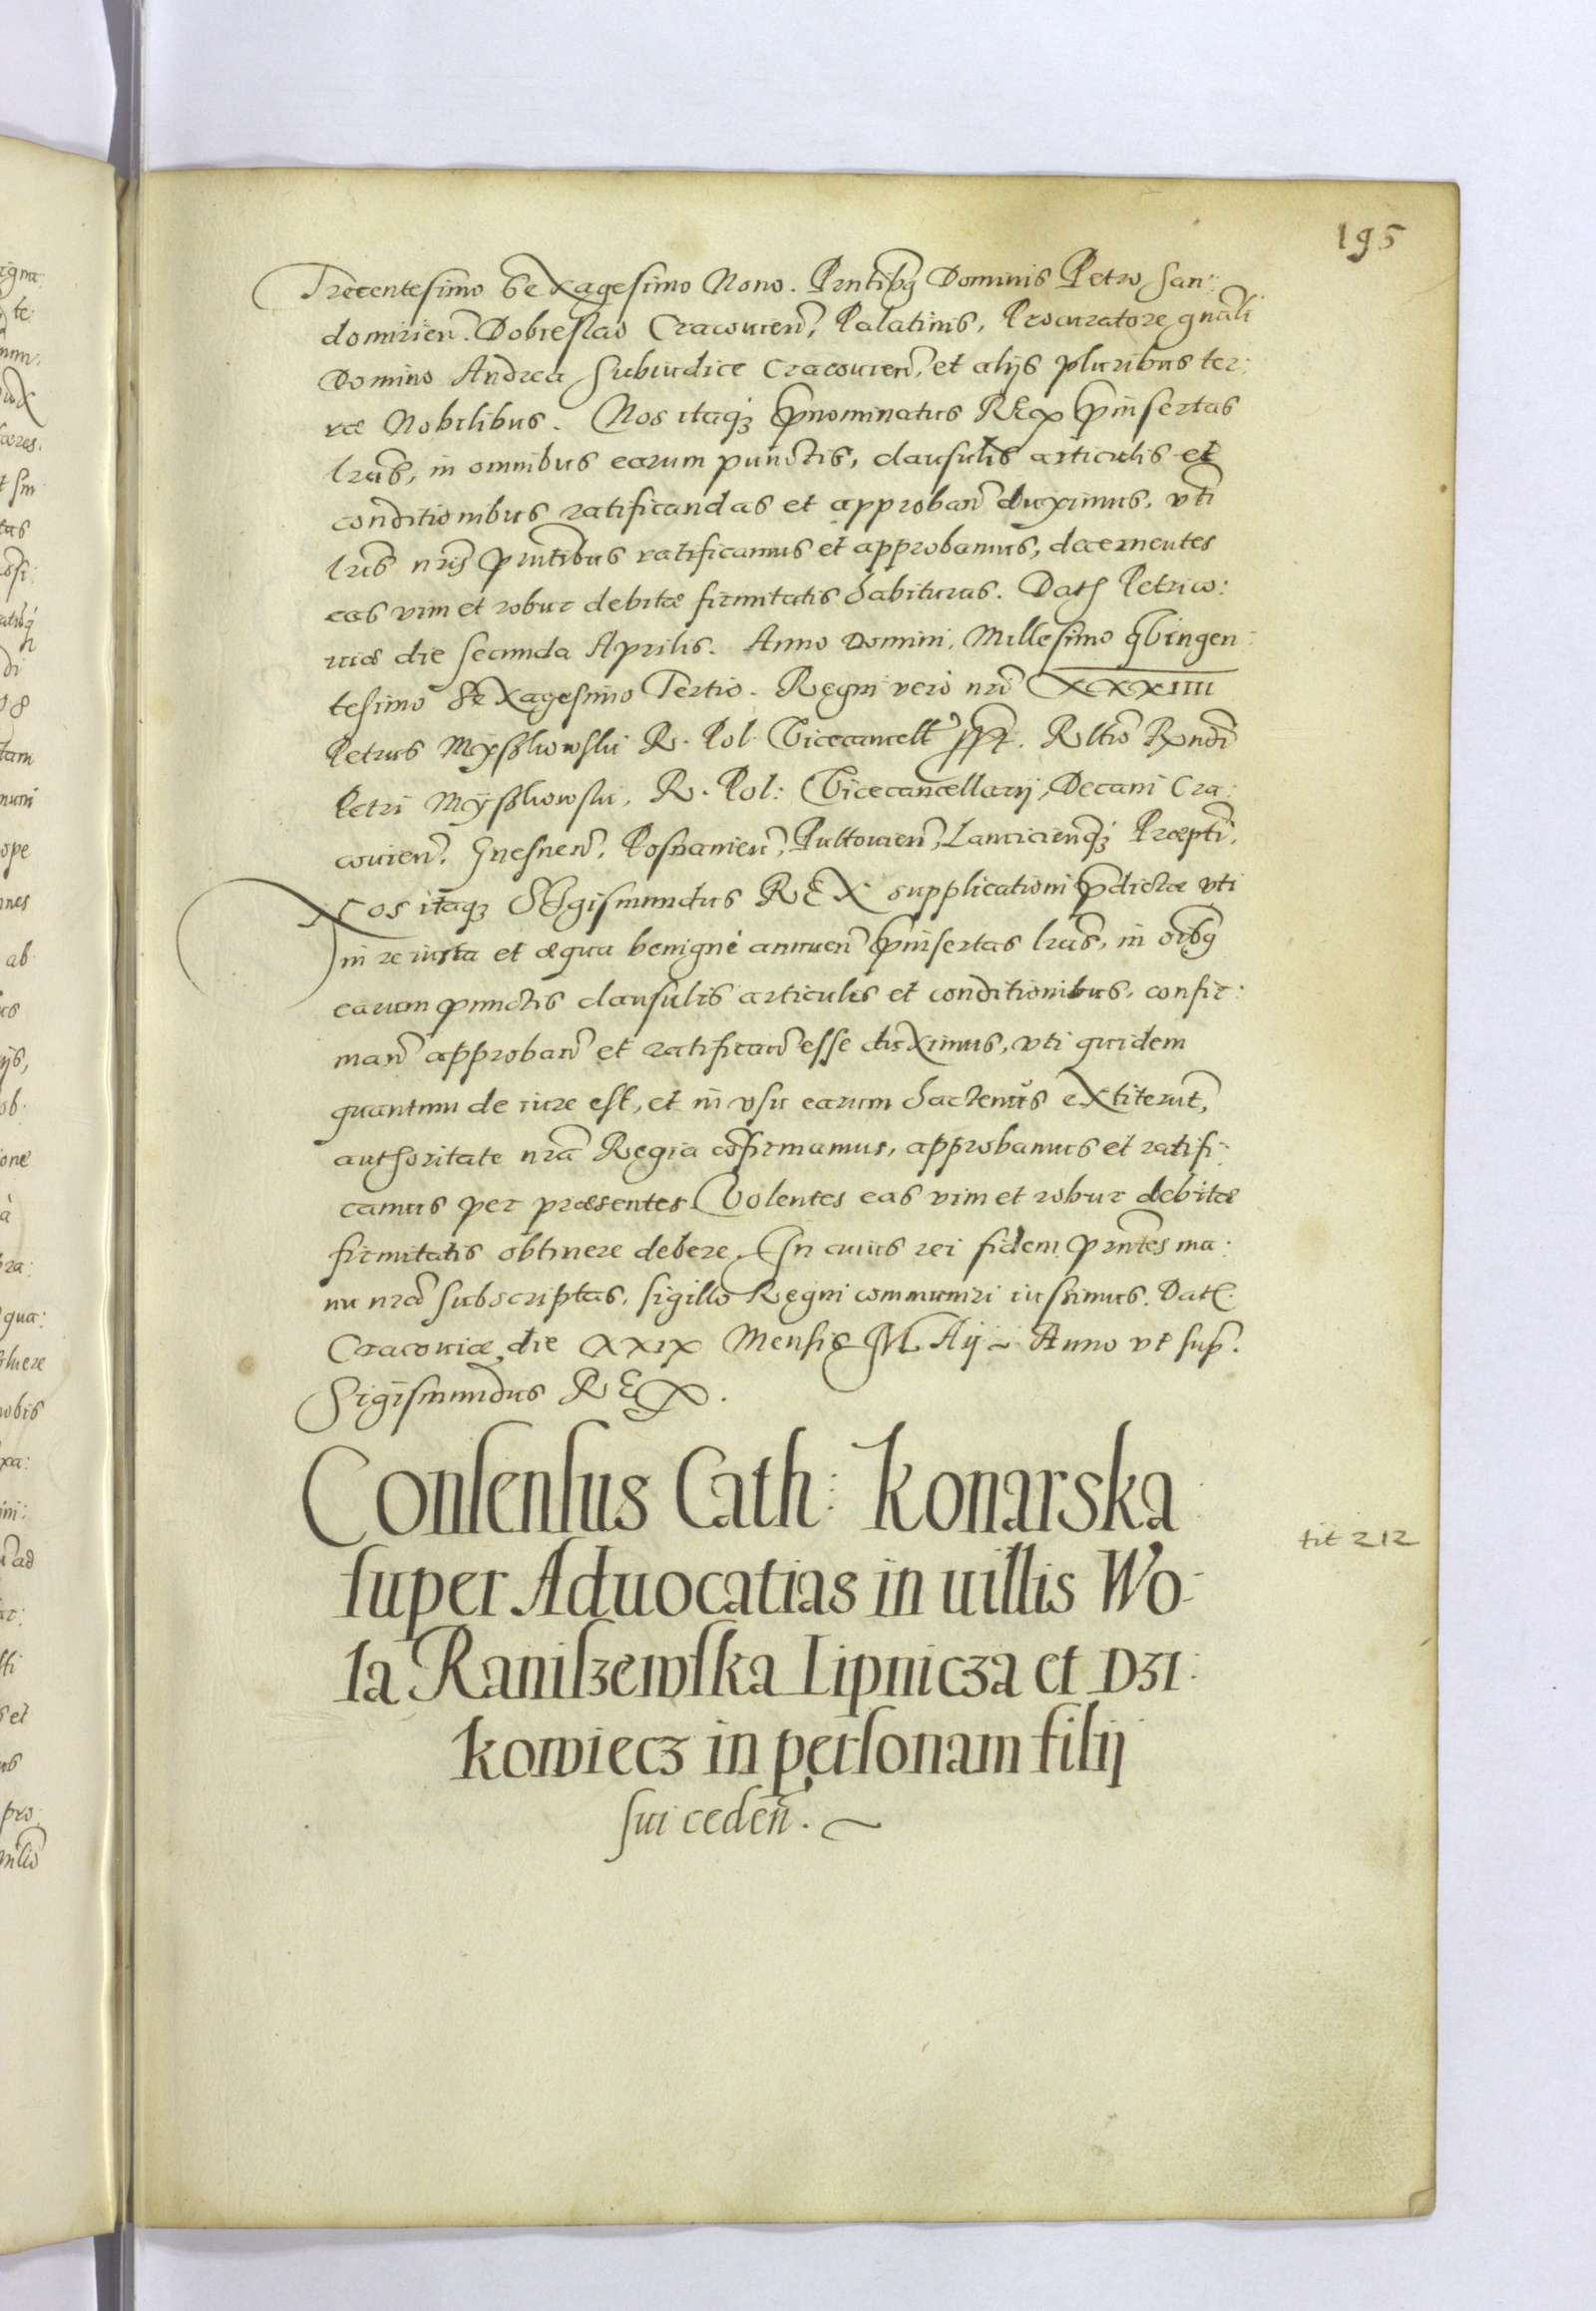 195
Trecentesimo SeXagesimo Nono. Pntibq Dominis Petro San:
domirien. Dobieslao Cracouien, Palatinis, Procuratore gnali
Domino Andrea Subiudice Cracouien, et alijs pluribus ter:
ræ Nobilibus. Nos itaqꝫ pnominatus REX pinsertas
lras, in omnibus earum punctis, clausulis articulis et
conditionibus ratificandas et approban duximus, vti
lris nris pntibus ratificamus et approbamus, decernentes
eas vim et robur debitæ firmitatis habituras. Dat Petrico:
uiæ die secunda Aprilis. Anno Domini, Millesimo qVingen:
tesimo SeXagesimo Tertio. Regni vero nri XXXIIII
Petrus Myszkowski R. Pol. Vicecancell sst. Rltio Rxndi
Petri Mÿszkowski, R. Pol: Vicecancellarij, Decani Cra:
couien, Gnesnen, Posnanien, Pultouien, Lancicienqꝫ Præpti.
Nos itaqꝫ SIgismundus REX supplicationi pdictæ vti
in re iusta et æqua benignè annuen pinsertas lras, in oibq
earum punctis clausulis articulis et conditionibus, confir:
man approban et ratifican esse duXimus, vti quidem
quantum de iure est, et in vsu earum hactenus eXtiterut,
authoritate nra Regia cofirmamus, approbamus et ratifi:
camus per præsentes. Volentes eas vim et robur debitæ
firmitatis obtinere debere. In cuius rei fidem pntes ma:
nu nra subscriptas, sigillo Regni communiri iussimus. Dat.
Cracouiæ, die XXIX Mensis MAij ~ Anno vt sup.
Sigismundus REX.
Consensus Cath: Konarska
super Aduocatias in uillis Wo:
la Raniszewska Lipnicza et Dzi:
kowiecz in personam filij
sui ceden. ~
tit 212